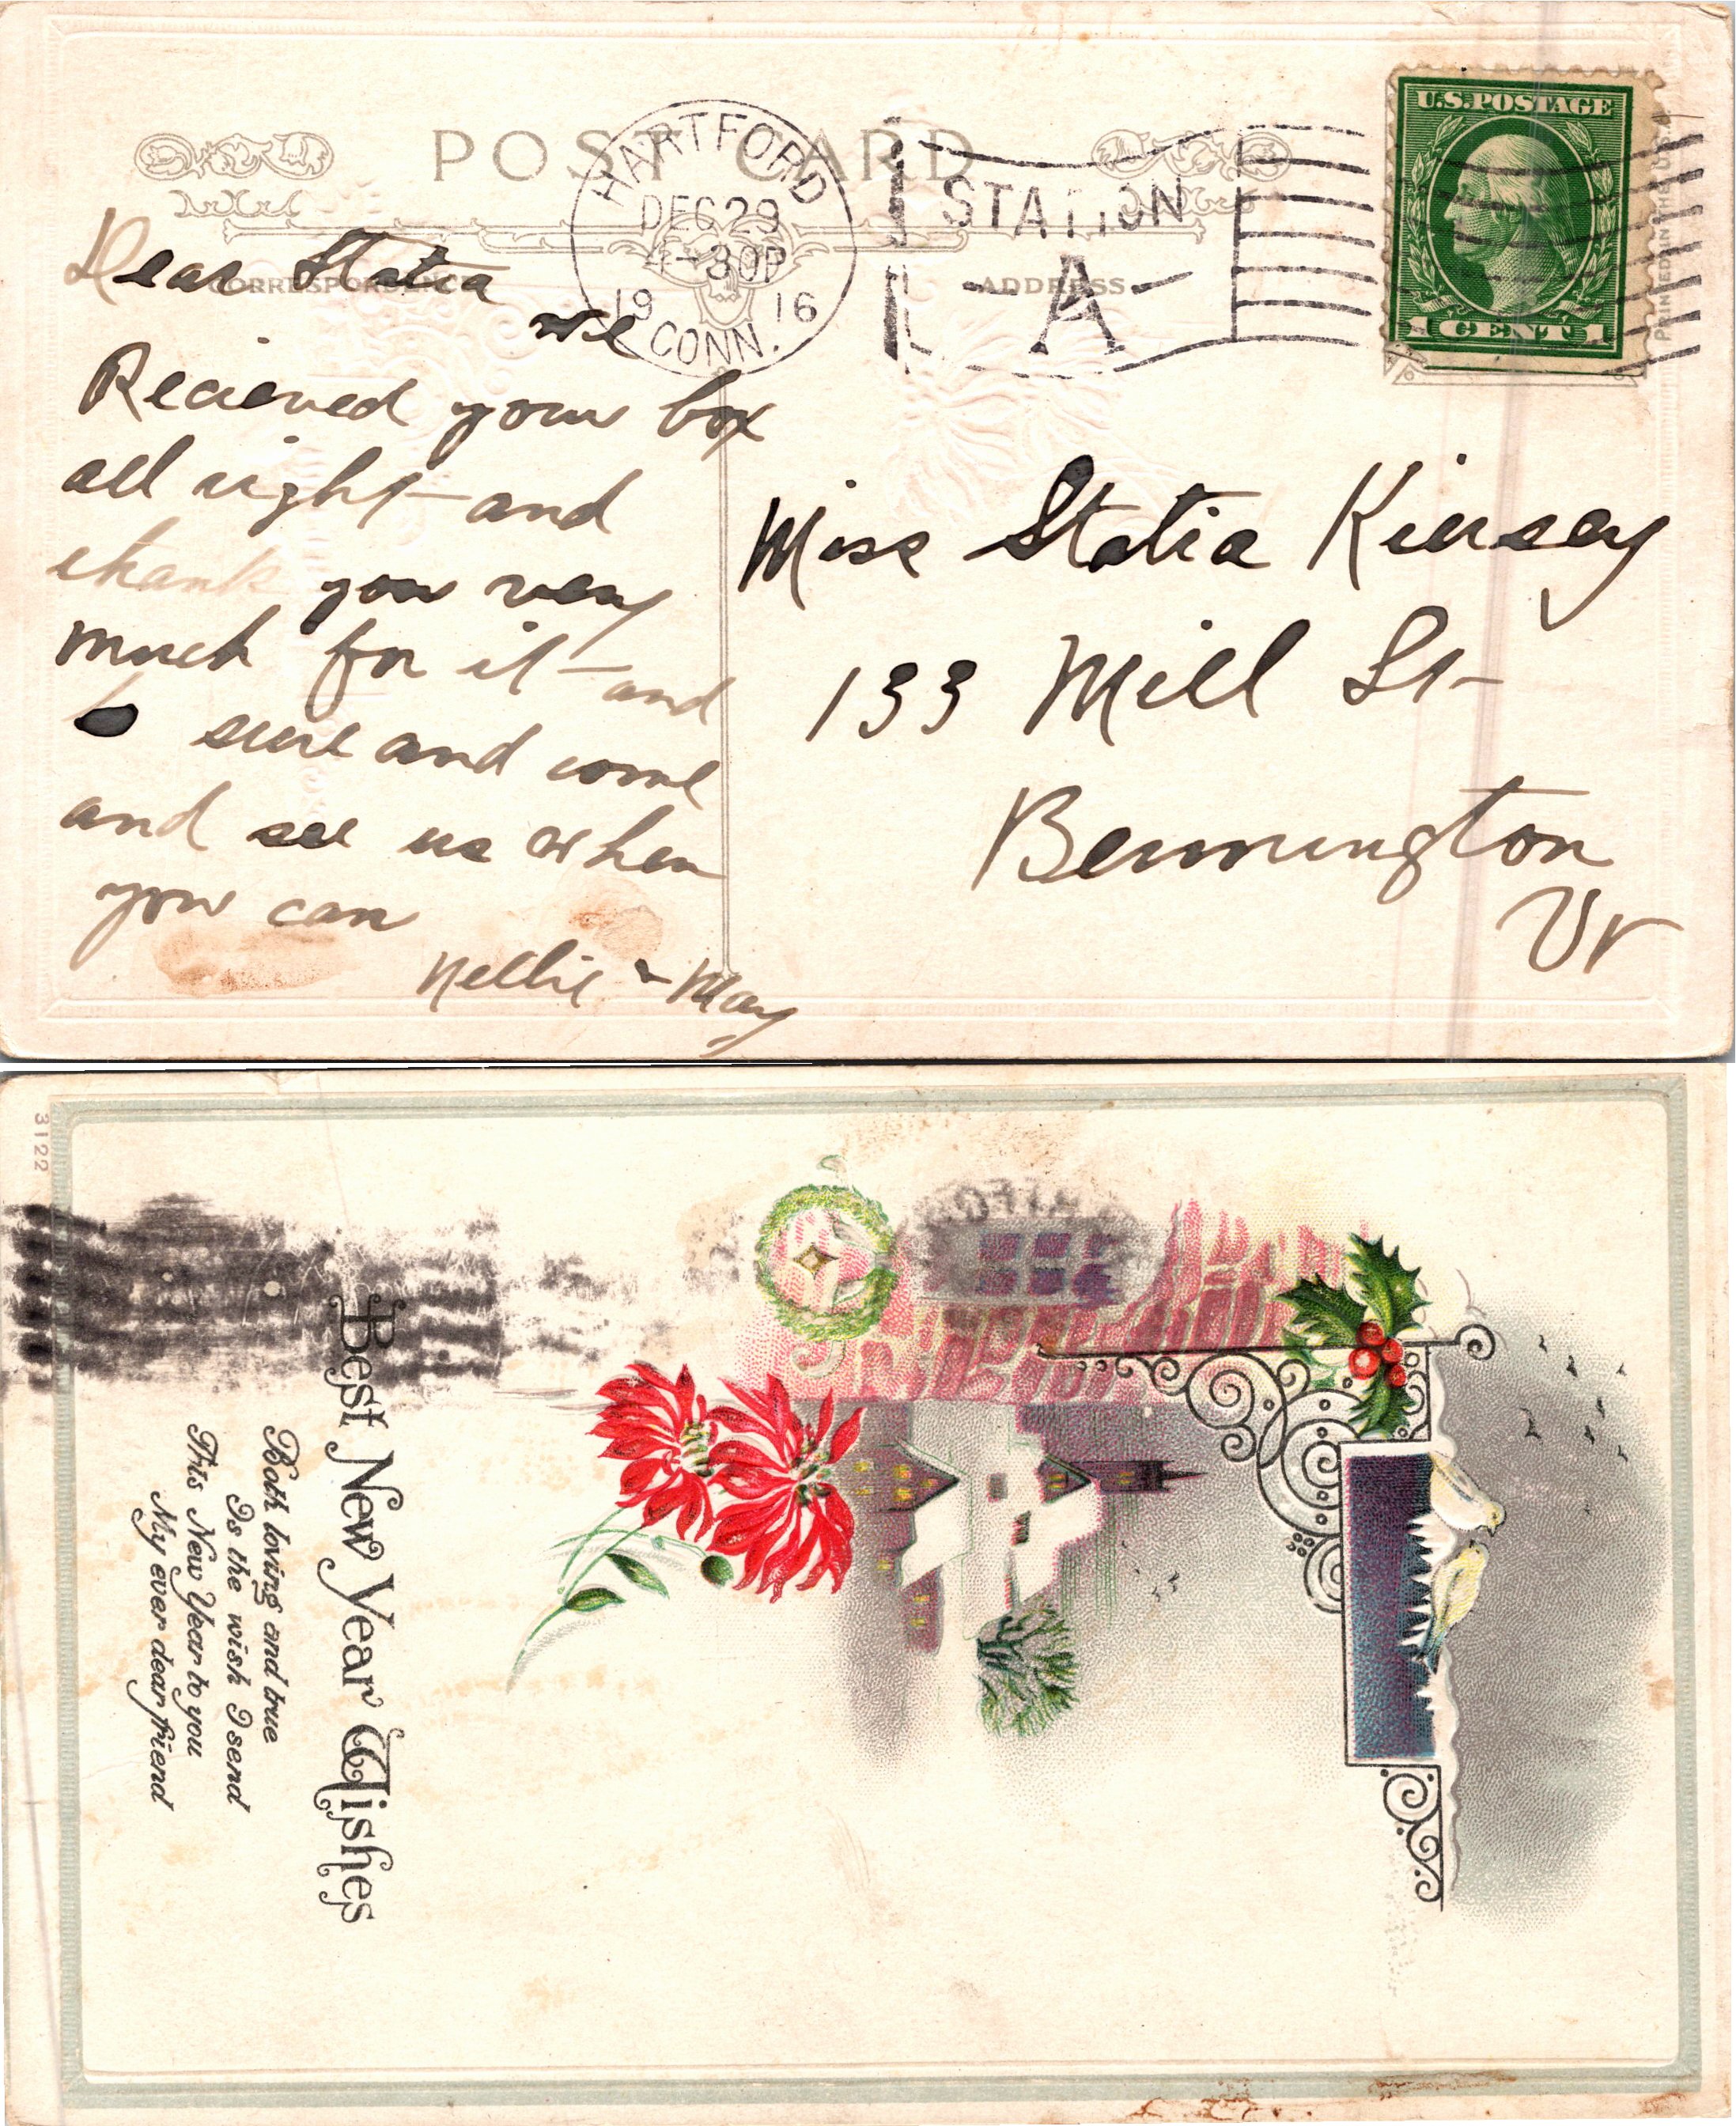 POST CARD
HARTFORD
DEC 29
4-30P
1916
CONN.
STATION
A
U.S. POSTAGE
1 CENT 1
PRINTED IN THE U.S.A.
CORRESPONDENCE
ADDRESS
Dear Statia
we
Recieved your box
all right and
thank you very
much for it and
sure and come
and see us when
you can
Nellie & May
Miss Statia Kiersey
133 Mill St
Bennington
Vt
3122
Best New Year Wishes
Both loving and true
Is the wish I send
This New Year to you
My ever dear friend